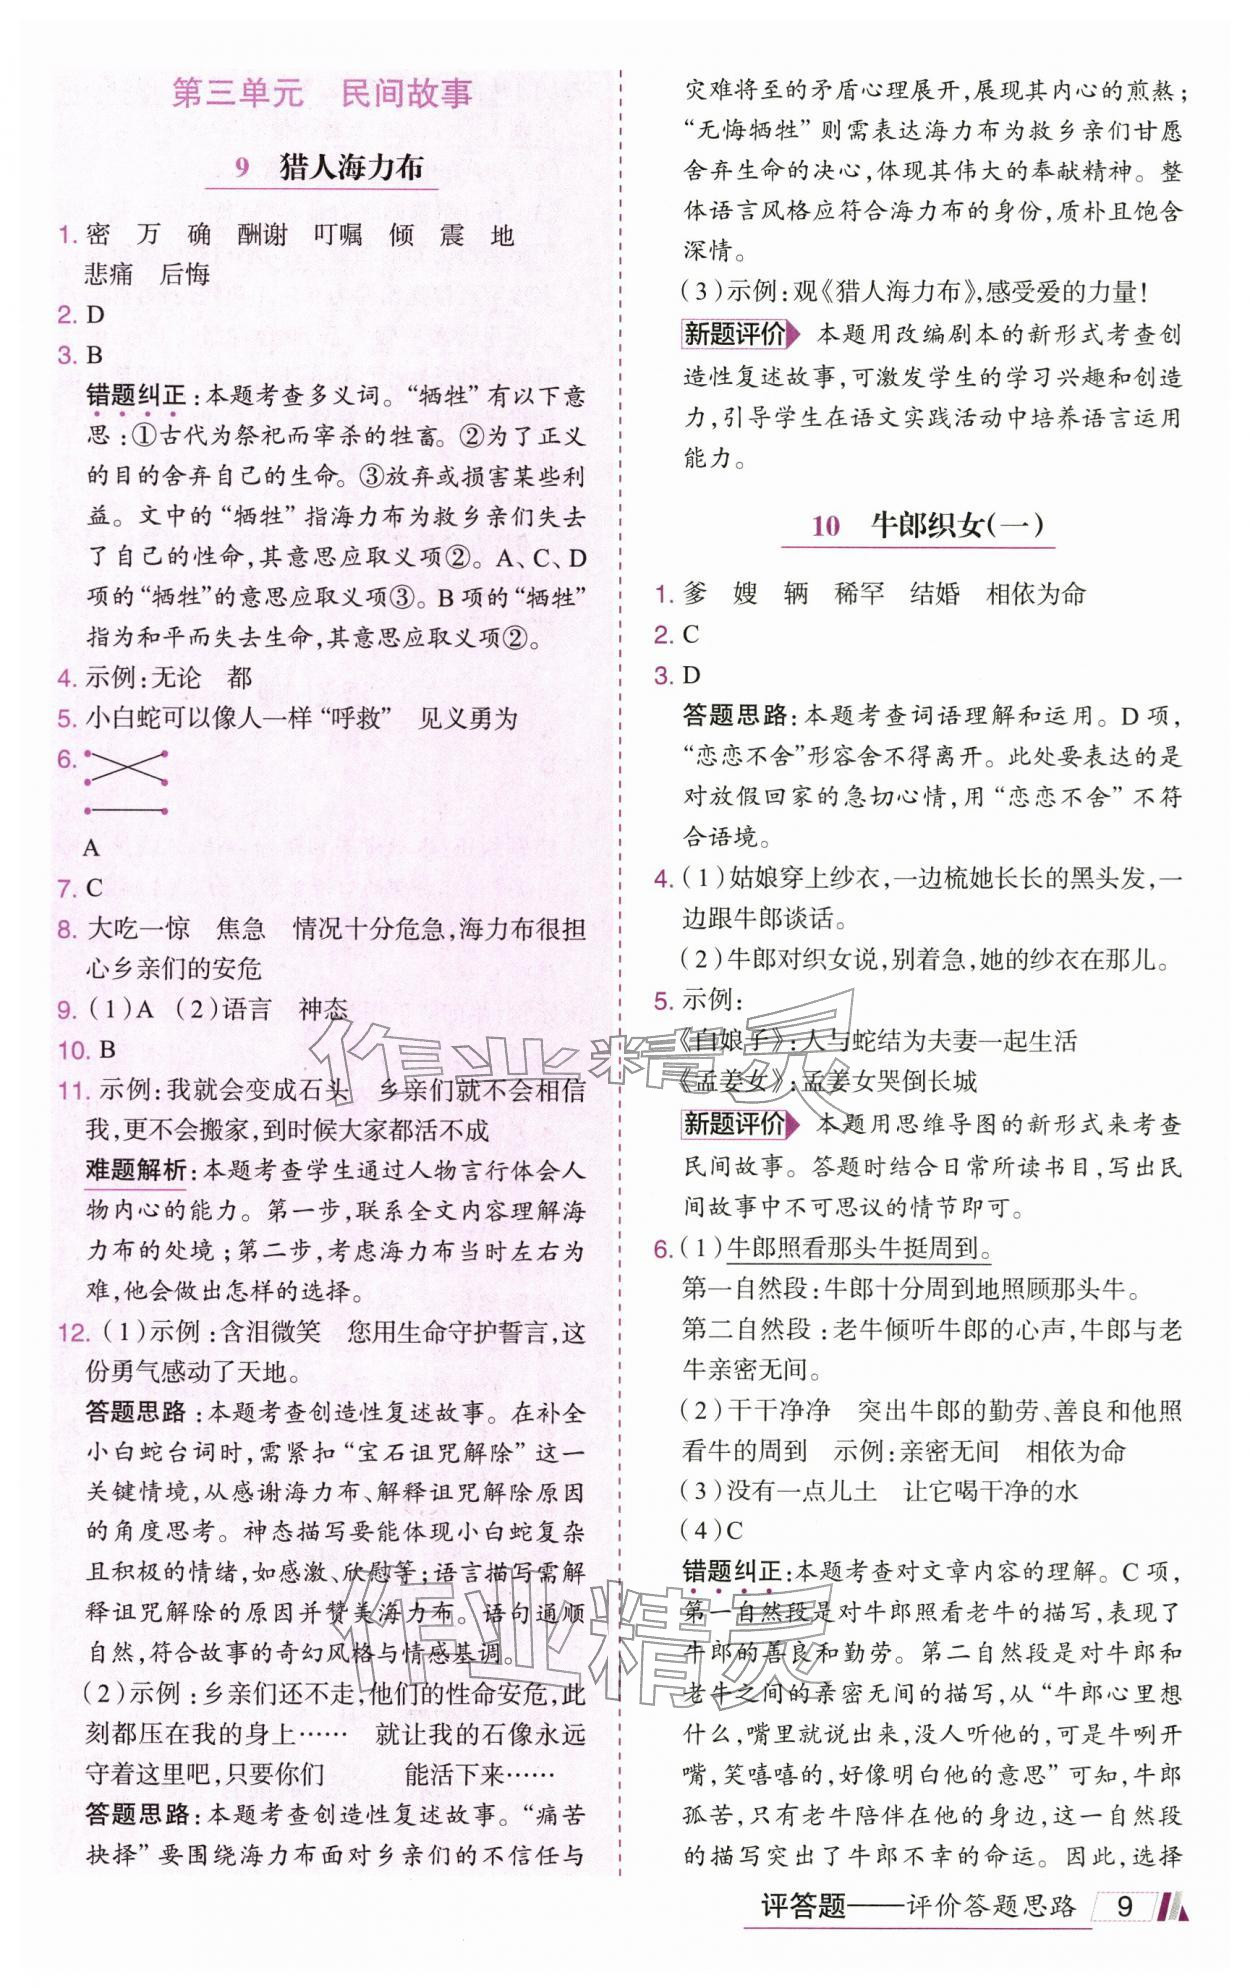 第三单元　民间故事
9　猎人海力布
1. 密　万　确　酬谢　叮嘱　倾　震　地
悲痛　后悔
2. D
3. B
错题纠正:本题考查多义词。“牺牲”有以下意
思:①古代为祭祀而宰杀的牲畜。②为了正义
的目的舍弃自己的生命。③放弃或损害某些利
益。文中的“牺牲”指海力布为救乡亲们失去
了自己的性命,其意思应取义项②。A、C、D
项的“牺牲”的意思应取义项③。B项的“牺牲”
指为和平而失去生命,其意思应取义项②。
4. 示例:无论　都
5. 小白蛇可以像人一样“呼救”　见义勇为
6.
A
7. C
8. 大吃一惊　焦急　情况十分危急,海力布很担
心乡亲们的安危
9. (1)A　(2)语言　神态
10. B
11. 示例:我就会变成石头　乡亲们就不会相信
我,更不会搬家,到时候大家都活不成
难题解析:本题考查学生通过人物言行体会人
物内心的能力。第一步,联系全文内容理解海
力布的处境;第二步,考虑海力布当时左右为
难,他会做出怎样的选择。
12. (1)示例:含泪微笑　您用生命守护誓言,这
份勇气感动了天地。
答题思路:本题考查创造性复述故事。在补全
小白蛇台词时,需紧扣“宝石诅咒解除”这一
关键情境,从感谢海力布、解释诅咒解除原因
的角度思考。神态描写要能体现小白蛇复杂
且积极的情绪,如感激、欣慰等;语言描写需解
释诅咒解除的原因并赞美海力布。语句通顺
自然,符合故事的奇幻风格与情感基调。
(2)示例:乡亲们还不走,他们的性命安危,此
刻都压在我的身上……　就让我的石像永远
守着这里吧,只要你们　能活下来……
答题思路:本题考查创造性复述故事。“痛苦
抉择”要围绕海力布面对乡亲们的不信任与
灾难将至的矛盾心理展开,展现其内心的煎熬;
“无悔牺牲”则需表达海力布为救乡亲们甘愿
舍弃生命的决心,体现其伟大的奉献精神。整
体语言风格应符合海力布的身份,质朴且饱含
深情。
(3)示例:观《猎人海力布》,感受爱的力量!
新题评价　本题用改编剧本的新形式考查创
造性复述故事,可激发学生的学习兴趣和创造
力,引导学生在语文实践活动中培养语言运用
能力。
10　牛郎织女(一)
1. 爹　嫂　辆　稀罕　结婚　相依为命
2. C
3. D
答题思路:本题考查词语理解和运用。D项,
“恋恋不舍”形容舍不得离开。此处要表达的是
对放假回家的急切心情,用“恋恋不舍”不符
合语境。
4. (1)姑娘穿上纱衣,一边梳她长长的黑头发,一
边跟牛郎谈话。
(2)牛郎对织女说,别着急,她的纱衣在那儿。
5. 示例:
《白娘子》:人与蛇结为夫妻一起生活
《孟姜女》:孟姜女哭倒长城
新题评价　本题用思维导图的新形式来考查
民间故事。答题时结合日常所读书目,写出民
间故事中不可思议的情节即可。
6. (1)牛郎照看那头牛挺周到。
第一自然段:牛郎十分周到地照顾那头牛。
第二自然段:老牛倾听牛郎的心声,牛郎与老
牛亲密无间。
(2)干干净净　突出牛郎的勤劳、善良和他照
看牛的周到　示例:亲密无间　相依为命
(3)没有一点儿土　让它喝干净的水
(4)C
错题纠正:本题考查对文章内容的理解。C项,
第一自然段是对牛郎照看老牛的描写,表现了
牛郎的善良和勤劳。第二自然段是对牛郎和
老牛之间的亲密无间的描写,从“牛郎心里想
什么,嘴里就说出来,没人听他的,可是牛咧开
嘴,笑嘻嘻的,好像明白他的意思”可知,牛郎
孤苦,只有老牛陪伴在他的身边,这一自然段
的描写突出了牛郎不幸的命运。因此,选择
作业精灵
作业精灵
评答题——评价答题思路　9